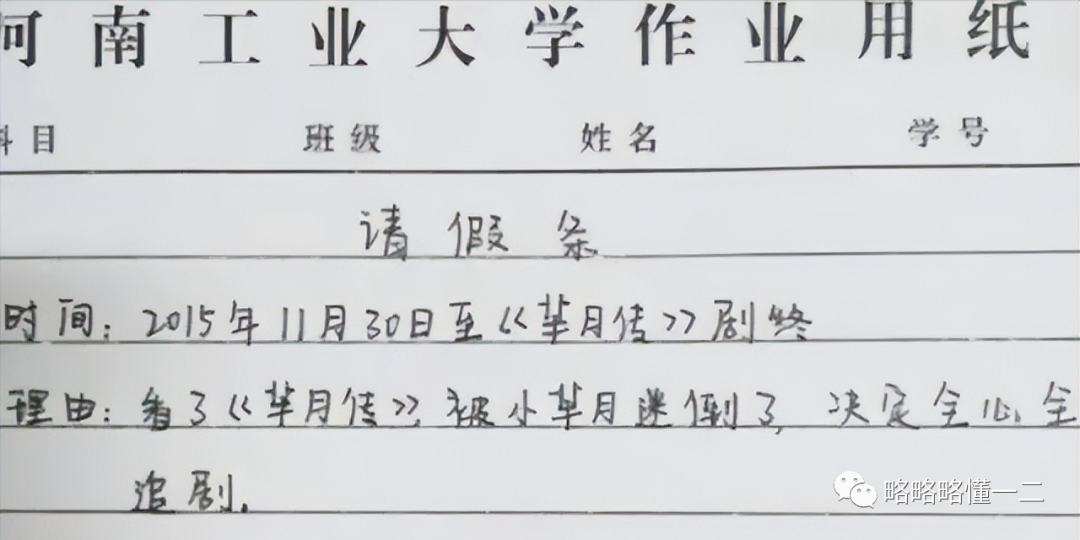 河南工业大学作业用纸
科目 班级 姓名 学号
请假条
时间：2015年11月30日至《芈月传》剧终
理由：看了《芈月传》，被小芈月迷倒了，决定全心全
追剧.
略略略懂一二